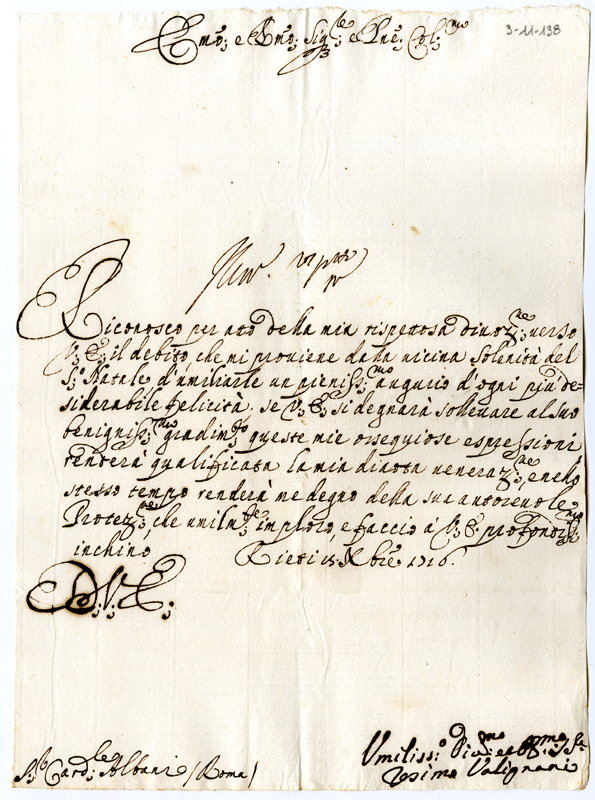 3-11-138
Emo: e Rmo: Sigle: e Pne: Colmo
Riconosco per atto della mia rispettosa divozne: verso
V: E: il debito, che mi proviene dalla vicina Solenità del
S:o Natale d'umiliarle un pieniss:mo augurio d'ogni più de=
siderabile felicità. se V: E: si degnarà sollevare al suo
benigniss:mo gradim:to queste mie ossequiose espressioni
renderà qualificata la mia divota venerazne:, e nello
stesso tempo renderà me degno della sua autorevole
Protezne:, che umilm:te imploro, e faccio à V: E: profondiss:mo
inchino, Rieti 15 Xbre: 1716.
D: V: E:
Sr Card:le Albani (Roma)
Umiliss:o Divmo: et Obmo: Sr
Valignani